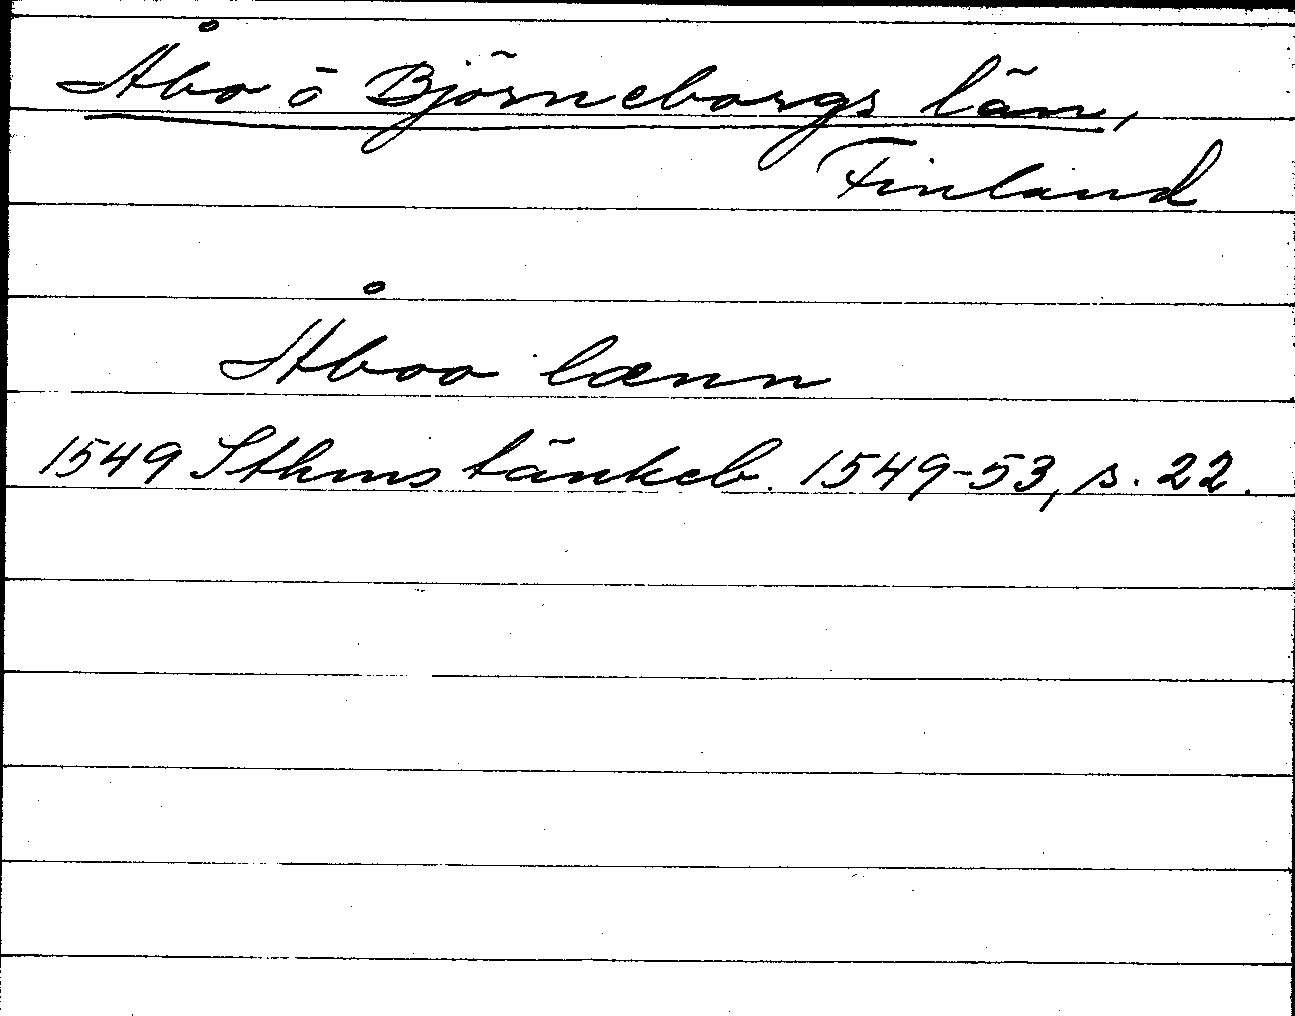 Åbo o Björneborgs län,
Finland
Åboo lænn
1549 Sthms tänkeb. 1549-53, s. 22.